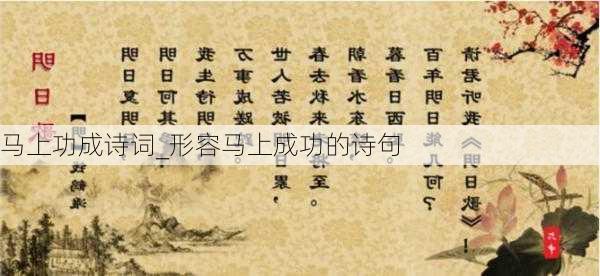 明日歌
【明】钱鹤滩
明日复明日，
明日何其多。
我生待明日，
万事成蹉跎。
世人若被明日累，
春去秋来老将至。
朝看水东流，
暮看日西坠。
百年明日能几何？
请君听我《明日歌》！
马上功成诗词_形容马上成功的诗句